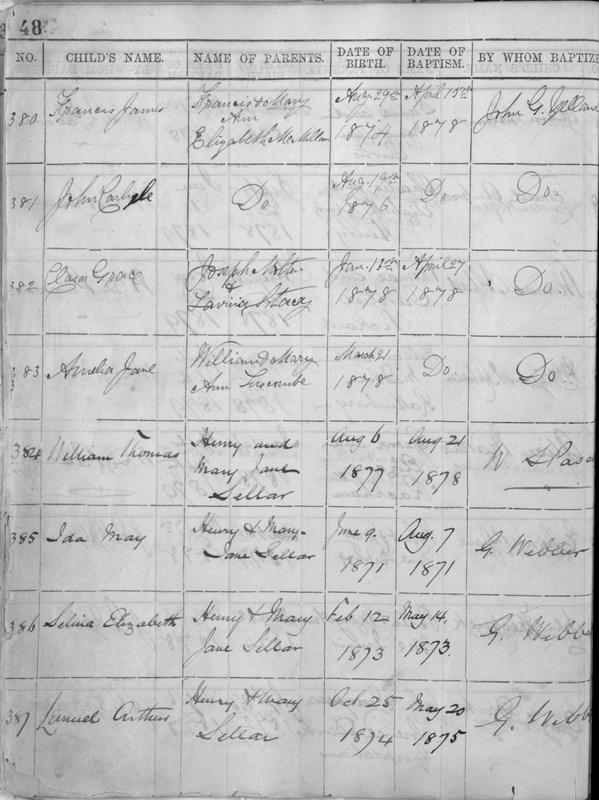 48
NO. CHILD'S NAME. NAME OF PARENTS. DATE OF BIRTH. DATE OF BAPTISM. BY WHOM BAPTIZE
380 Francis James Francis & Mary Aug. 29th April 15th John G.
Ann
Elizabeth McMillan 1874 1878
381 John Carlyle Do. Aug. 19th Do Do.
1876
382 Clara Grace Joseph Jan. 13th April 27 Do.
&
Lavinia Stacey 1878 1878
383 Amelia Jane William & Mary March 21 Do. Do.
Ann Luscombe 1878
384 William Thomas Henry and Aug 6 Aug 21 W
Mary Jane 1877 1878
Sellar
385 Ida May Henry & Mary- June 9. Aug. 7 G. Webber
Jane Sellar 1871 1871
386 Selina Elizabeth Henry & Mary Feb 12 May 14, G. Webbe
Jane Sellar 1873 1873.
387 Samuel Arthur Henry & Mary Oct 25 May 20 G. Webb
Sellar 1874 1875